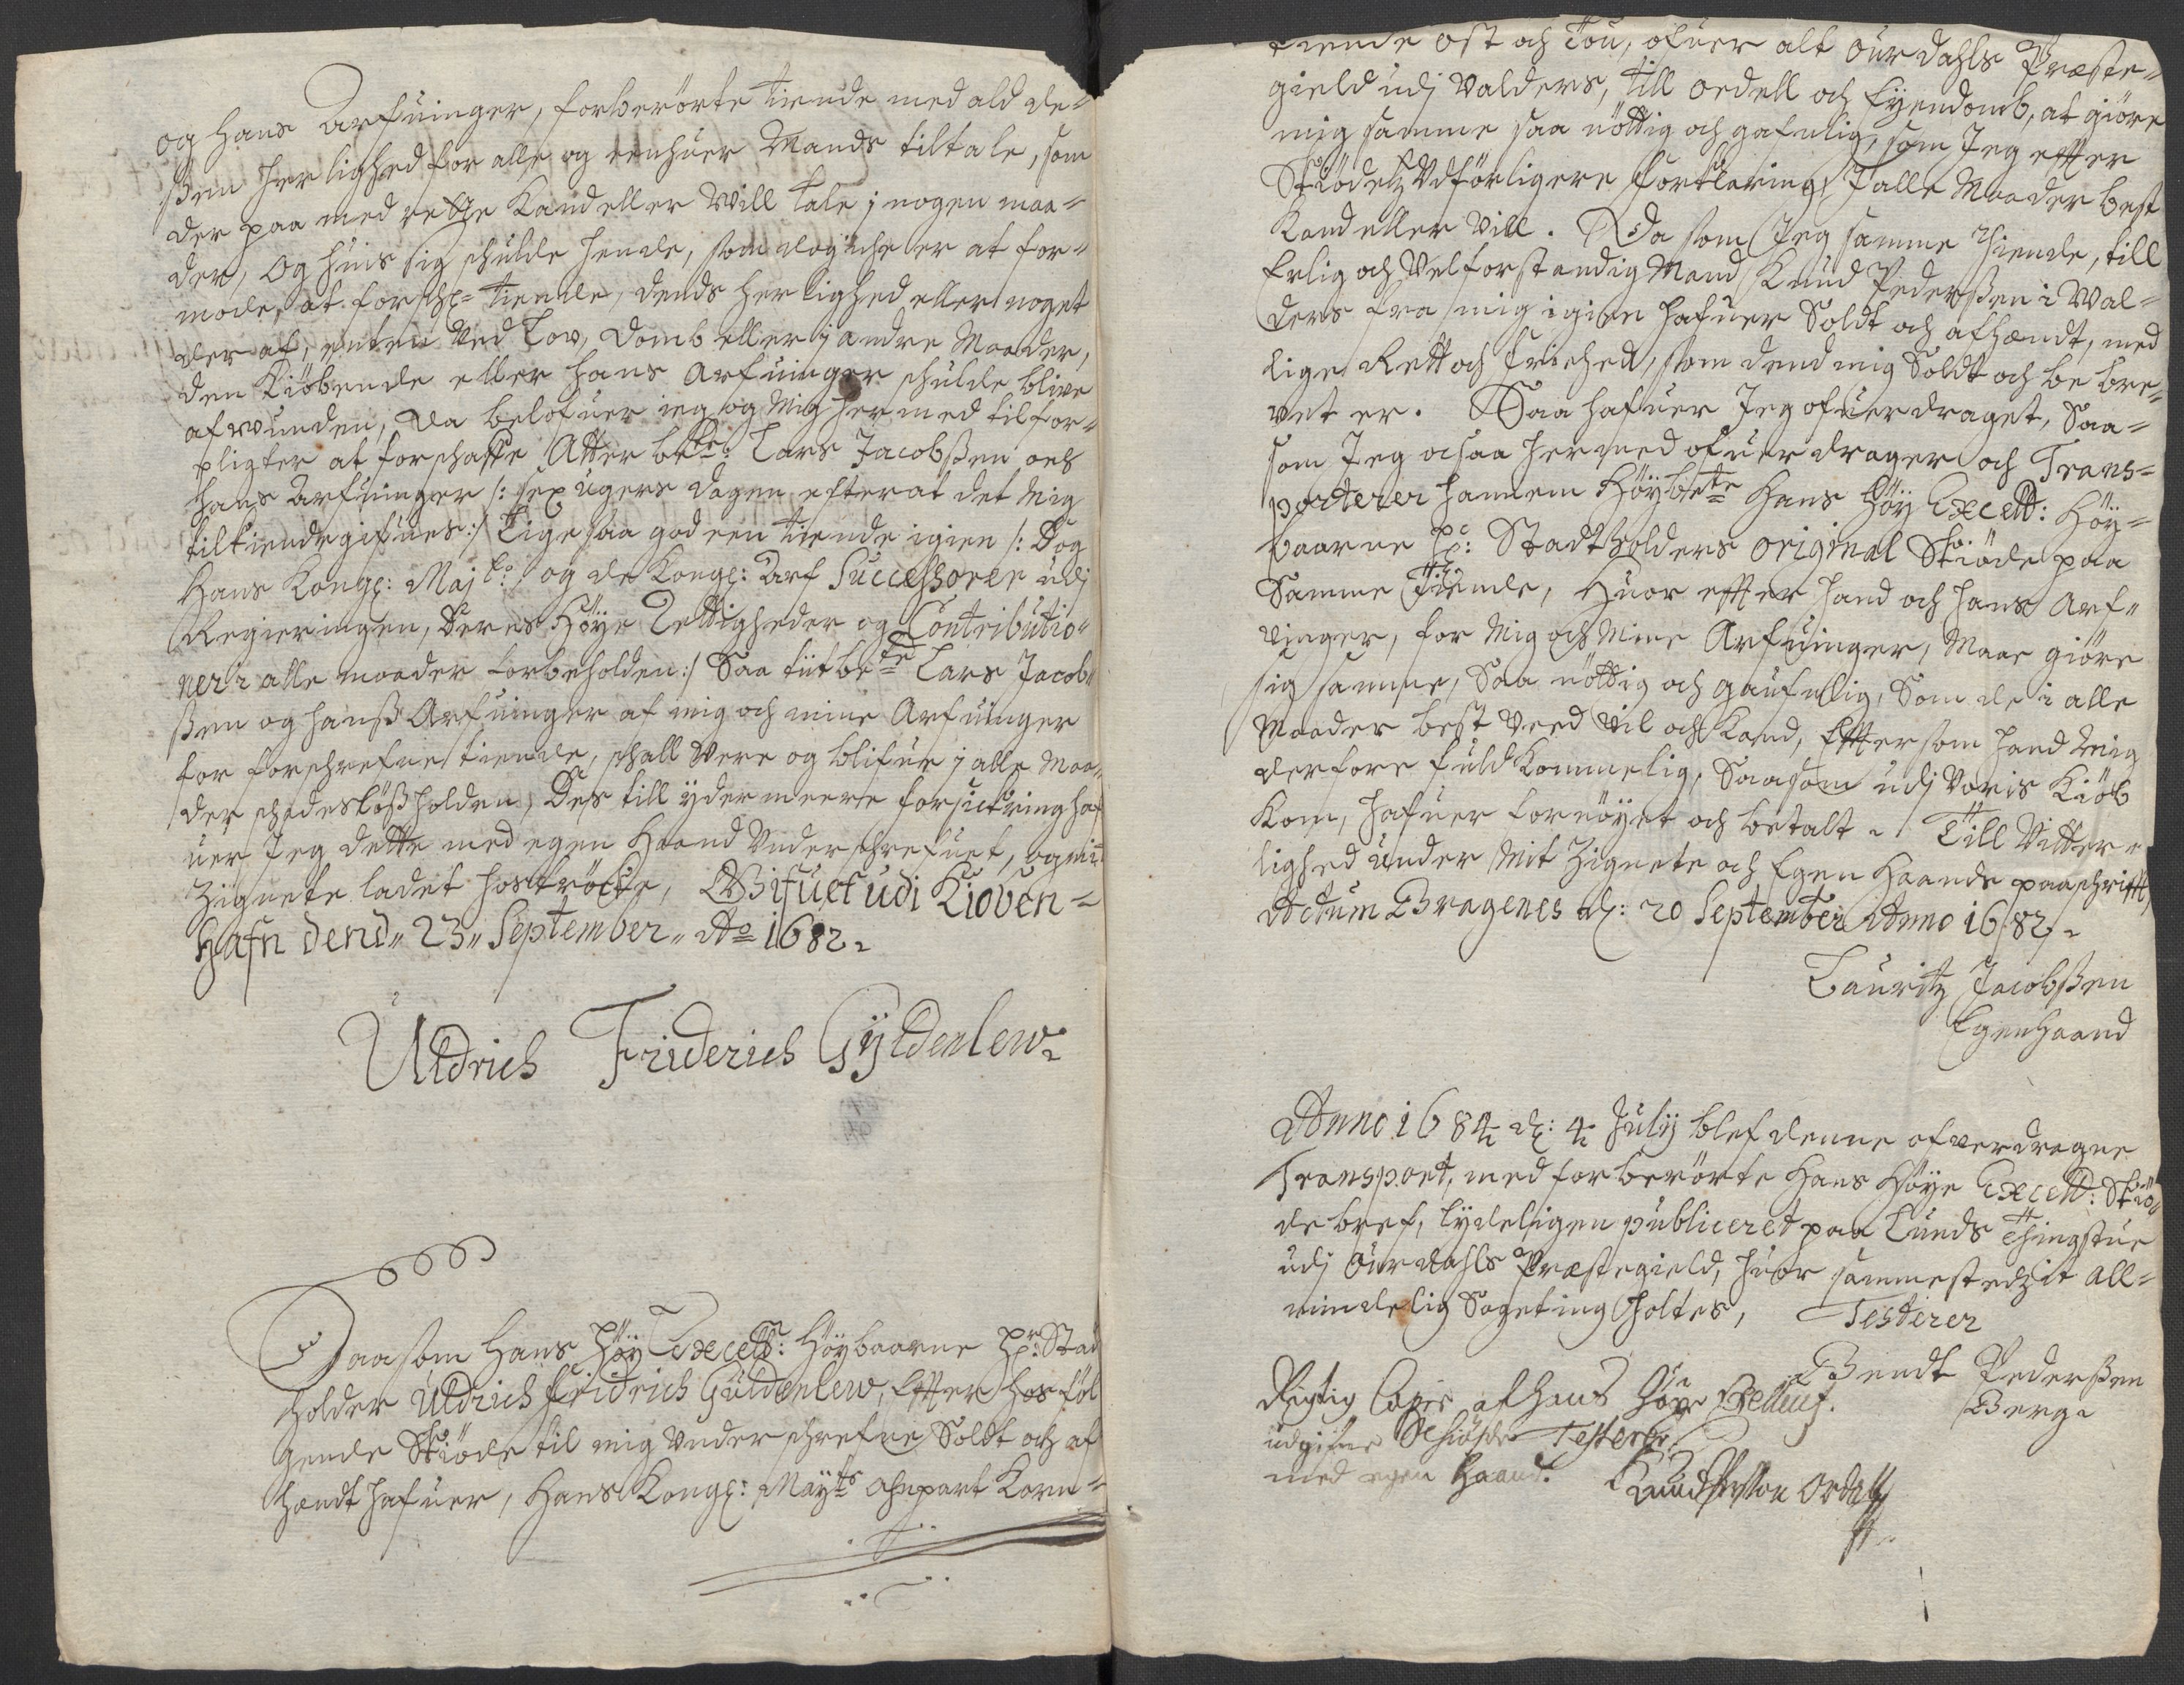 og hans Arfuinger, forberörte tiende med ald de=
ßen herlighed for alle og eenhuer Mands tiltale, som
der paa med rette Kand eller will tale i nogen maa=
der, Og huis sig schulde hende, som dog iche er at for=
mode, at forsch: tiende, dends herlighed eller noget
der af, enten Ved Lov, Domb eller j andre Maader,
den Kiöbende eller hans Arfuinger schulde blive
afwunden, da belofuer ieg og Mig hermed tilfor=
pligter at forschaffe Atter bte: Lars Jacobßen och
hans Arfuinger /: sex ugers dagen efter at det Mig
tilkiende gifues :/ Lige saa god een tiende igien /: Dog
Hans Kongl: Majts: og de Kongl: Arf Successorer udj
Regieringen, deres Höye Rettigheder og Contributio=
ner i alle maader forbeholden :/ Saa titbte Lars Jacob=
ßen og hanß Arfuinger af mig och mine Arfuinger
for forschrefne tiende, schall Vere og blifue j alle Maa=
der schadeslöß holden, Des till ÿdermeere forsickring haf
uer Jeg dette med egen Haand Underschrefuet, og mit
Zignete ladet hoströcke, Gifuet udi Kioven=
hafn dend 23 September Ao 1682
Uldrich Friderich Gÿldenlew
Saasom Hans Höy Excell: Höybaarne Hr: Stad
holder Uldrich Fridrich Güldenlew, Effter hosföl
gende Skiöde til mig Underschrefne Soldt och af
hendt hafuer, Hans Kongl: Mayts Anpart Korn=
tiende ost och Tou, ofuer alt Ourdahls Præste=
gield udj Valders, till Oedell och Eyendomb, at giöre
mig samme saa nöttig och gafnlig, som Jeg effter
Skiödetz Udförligere forklaring, J alle Maader best
Kand eller vill. Da som Jeg samme Tiende, till
Erlig och Velforstandig Mand Knud Pederßen i Wal=
ders fra mig igien hafuer Soldt och afhændt, med
lige Rett och friehed, som dend mig Soldt och be bre=
vet er. Saa hafuer Jeg ofuerdraget, Saa=
som Jeg ochsaa hermed ofuerdrager och Trans=
porterer hannem Höybete Hans Höy Excell: Höy=
baarne Hr: Stadtholders original Skiöde paa
Samme Tiende, Huor effter hand och hans Arf=
vinger, for Mig och Mine Arfuinger, Maae giöre
sig samme, Saa nöttig och gaufnlig, Som de i alle
Maader best Veed Vil och Kand, Effter som hand Mig
derfore fuldkommelig, Saasom udj Voris Kiöb
Kom, hafuer fornöyet och betalt. Till Vitter=
lighed under Mit Zignete och Egen Haands paaschrifft
Actum Bragenes d: 20 September Anno 1682
Lauritz Jacobßen
Egenhaand
Anno 1684 d: 4 July blef denne ofverdragne
Transport, med forberörte Hans Höye Excell: Skiö=
de bref, lydeligen publiceret paa Lunds Thingstue
udj Ourdahls Præstegield, huor sammestedz it all=
mindelig Sageting holtes, Testerer
Bendt Pederßen
Berg
Rigtig Copie af hans Höye Excellentz
udgifne Schiöde Testerer
med egen Haand.